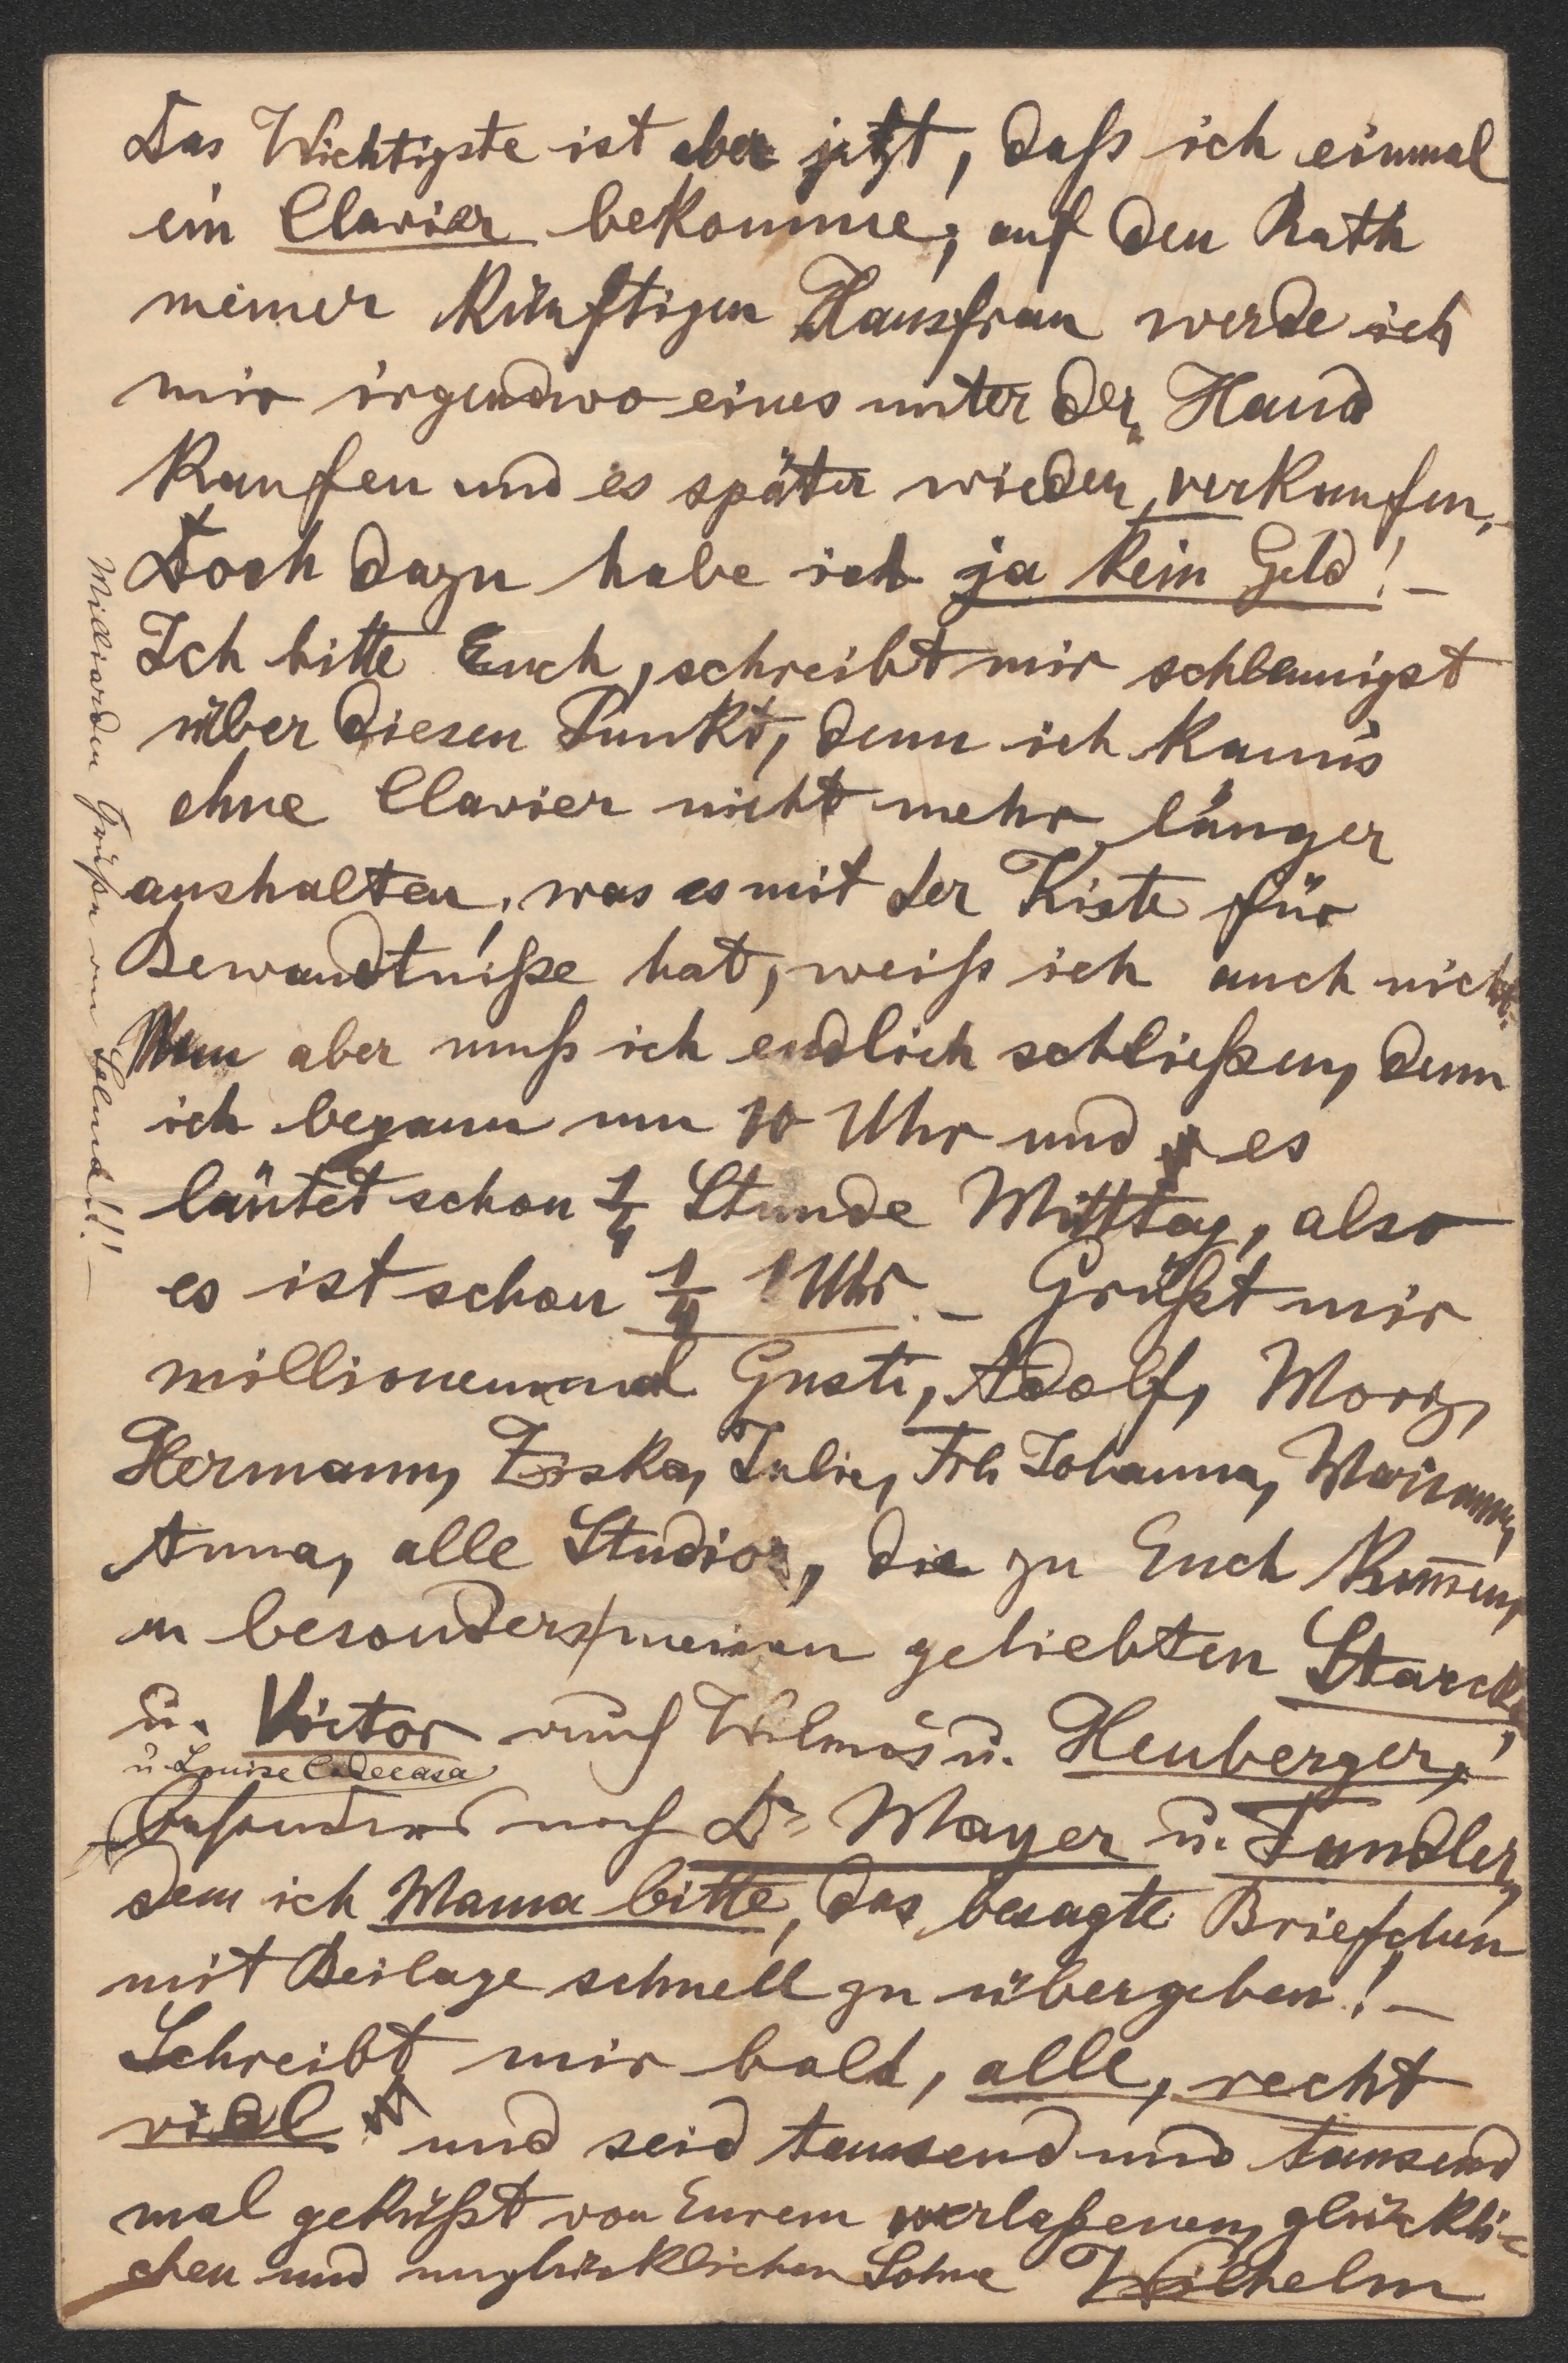 Das Wichtigste ist aber jetzt, daß ich einmal
ein Clavier bekomme; auf den Rath
meiner künftigen Hausfrau werde ich
mir irgendwo eines unter der Hand
kaufen und es später wieder verkaufen.–
Doch dazu habe ich ja kein Geld! –
Ich bitte Euch, schreibt mir schleunigst
über diesen Punkt, denn ich kann's
ohne Clavier nicht mehr länger
aushalten, was es mit der Kiste für
Bewandtniße hat, weiß ich auch nicht.
Nun aber muß ich endlich schließen, denn
ich begann um 10 Uhr und es
läutet schon 1/4 Stunde Mittag, also
es ist schon 1/4 1 Uhr. – Grüßt mir
millionenmal Gusti, Adolf, Moriz,
Hermann, Ziska, Julie, Frl Johanna, Marianne,
Anna, alle Studios, die zu Euch kom̅en,
u besonders meinen geliebten Starcke,
u. Victor auch Vilmós u. Heuberger,!
u. Louise Codecasa
besonders noch Dr. Mayer u. Tandler,
dem ich Mama bitte, das besagte Briefchen
mit Beilage schnell zu übergeben! –
Schreibt mir bald, alle, recht
viel und seid tausend und tausend
mal geküßt von Eurem verlaßenen, glückli-
chen und unglücklichen Sohne Wilhelm
Milliarden Grüße an Selma!!! –